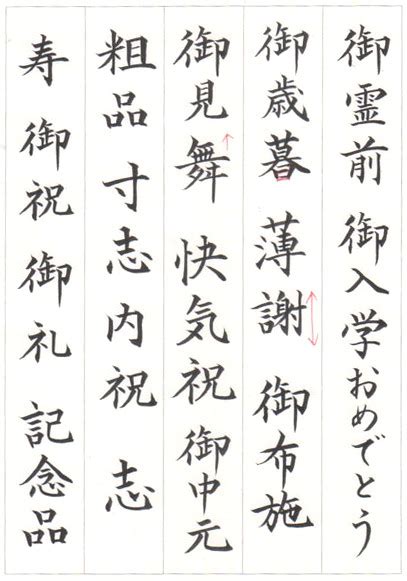 御霊前 御入学おめでとう
御歳暮 薄謝 御布施
御見舞 快気祝 御中元
粗品 寸志 内祝 志
寿 御祝 御礼 記念品